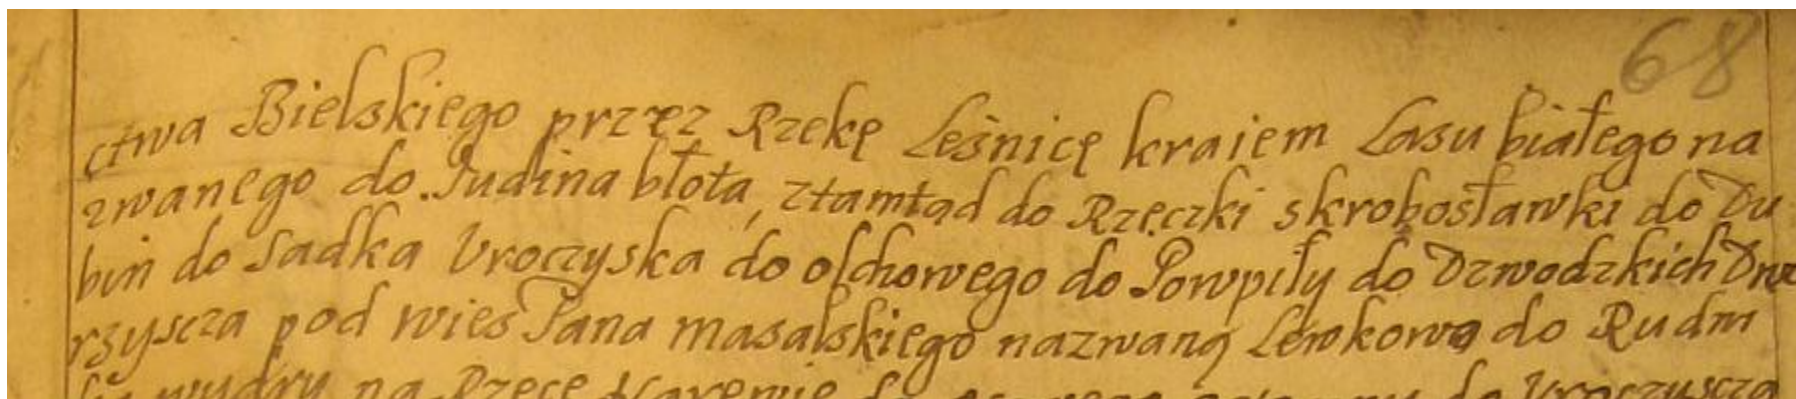 68
ctwa Bielskiego przez Rzekę Leśnicę kraiem Lasu białego na
zwanego do Judina błota, ztamtąd do Rzeczki skrobosławki do Du
bin do Sadka Vroczyska do olchowego do Powpiły do Dzwodzkich Dwo
rzyscza pod wies Pana masalskiego nazwaną Lewkowo do Rudni
wydry na Rzece Narewie do do Vroczyscza